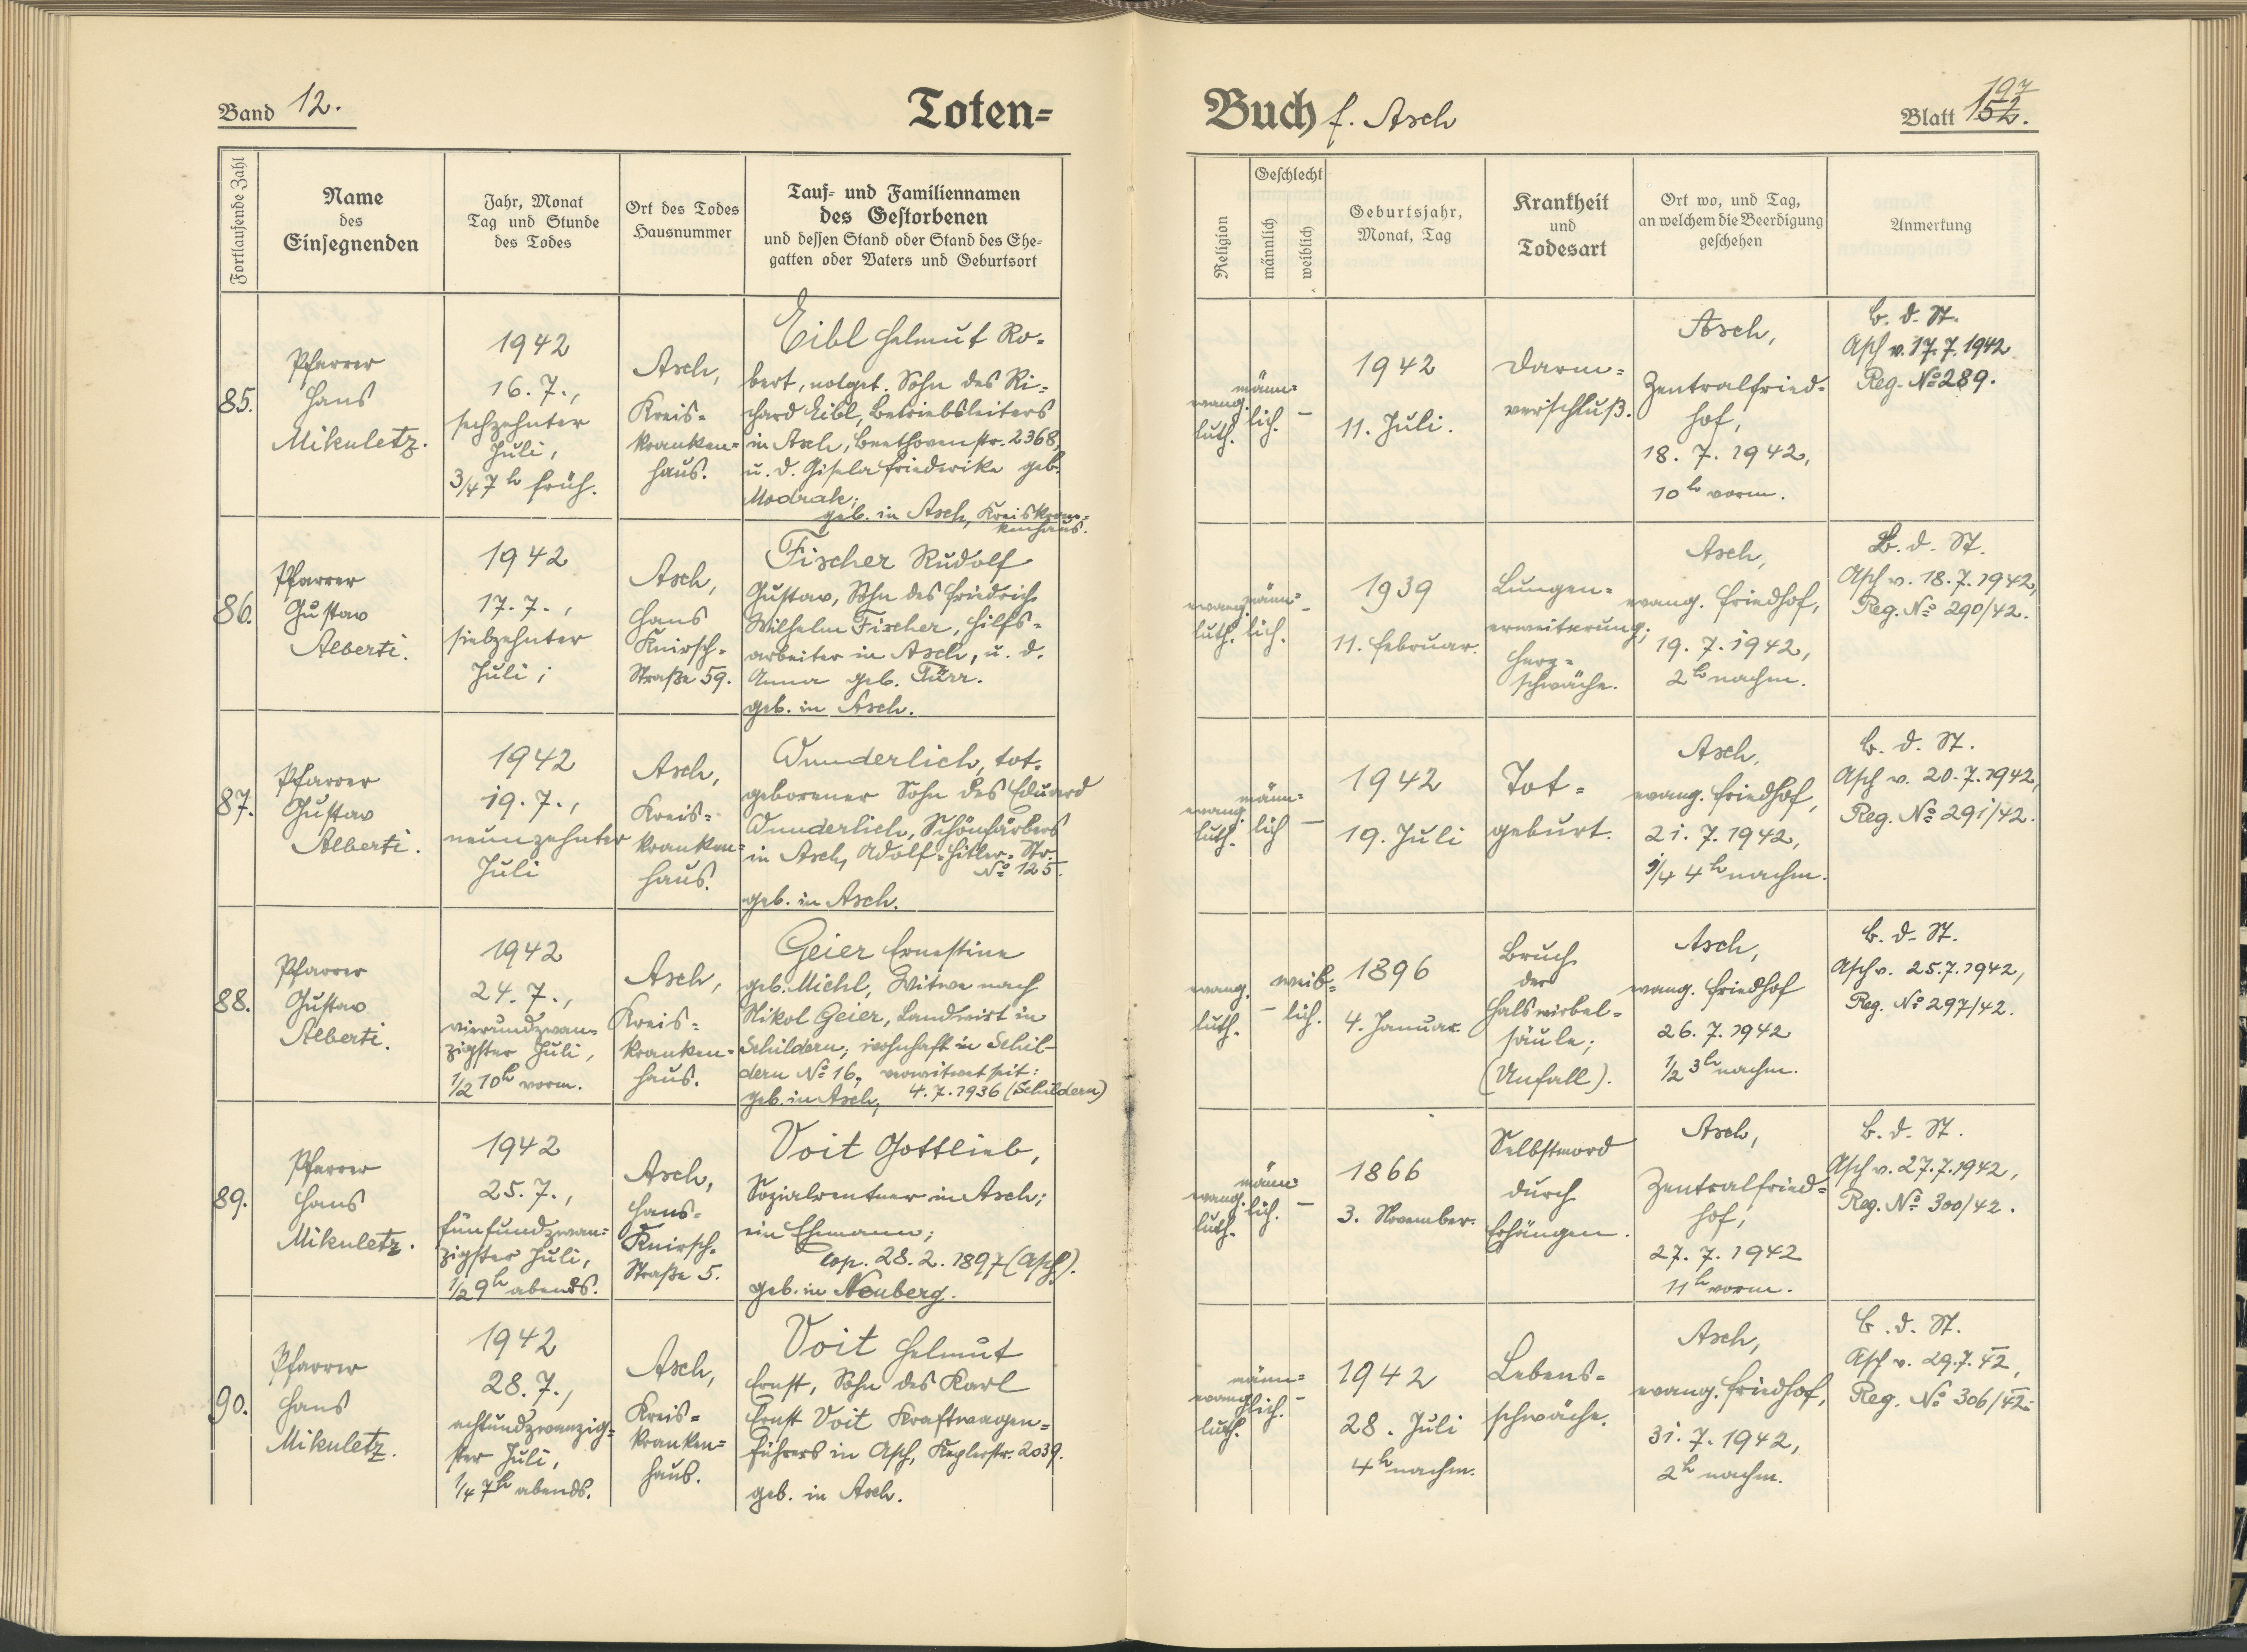 Band 12.
Toten=
Buch f. Asch
197
Blatt 152.
Fortlaufende Zahl
Name
des
Einsegnenden
Jahr, Monat
Tag und Stunde
des Todes
Ort des Todes
Hausnummer
Tauf= und Familiennamen
des Gestorbenen
und dessen Stand oder Stand des Ehe=
gatten oder Vaters und Geburtsort
Religion
Geschlecht
männlich
weiblich
Geburtsjahr,
Monat, Tag
Krankheit
und
Todesart
Ort wo, und Tag,
an welchem die Beerdigung
geschehen
Anmerkung
85.
Pfarrer
Hans
Mikuletz.
1942
16. 7.,
sechzehnter
Juli,
3/4 7 h früh.
Asch,
Kreis=
kranken=
haus.
Eibl Helmut Ro=
bert, notget. Sohn des Ri=
chard Eibl, Betriebsleiters
in Asch, Beethovenstr. 2368,
u. d. Gisela Friederike geb.
Modrak;
geb. in Asch, Kreiskran=
kenhaus.
evang.
luth.
männ=
lich.
–
1942
11. Juli.
Darm=
verschluß.
Asch,
Zentralfried=
hof,
18. 7. 1942,
10 h vorm.
B. d. St.
Asch v. 17. 7. 1942
Reg. No 289.
86.
Pfarrer
Gustav
Alberti.
1942
17. 7.,
siebzehnter
Juli;
Asch,
Hans
Knirsch=
Straße 59.
Fischer Rudolf
Gustav, Sohn des Friedrich
Wilhelm Fischer, Hilfs=
arbeiter in Asch, u. d.
Anna geb. Fürr.
geb. in Asch.
evang.
luth.
männ=
lich.
–
1939
11. Februar.
Lungen=
erweiterung;
Herz=
schwäche.
Asch,
evang. Friedhof,
19. 7. 1942,
2 h nachm.
B. d. St.
Asch v. 18. 7. 1942,
Reg. No 290/42.
87.
Pfarrer
Gustav
Alberti.
1942
19. 7.,
neunzehnter
Juli
Asch,
Kreis=
kranken=
haus.
Wunderlich, tot=
geborener Sohn des Eduard
Wunderlich, Schönfärbers
in Asch, Adolf=Hitler=Str.
No 125.
geb. in Asch.
evang.
luth.
männ=
lich
–
1942
19. Juli
Tot=
geburt.
Asch,
evang. Friedhof,
21. 7. 1942,
1/4 4 h nachm.
B. d. St.
Asch v. 20. 7. 1942,
Reg. No 291/42.
88.
Pfarrer
Gustav
Alberti.
1942
24. 7.,
vierundzwan=
zigster Juli,
1/2 10 h vorm.
Asch,
Kreis=
kranken=
haus.
Geier Ernestine
geb. Michl, Witwe nach
Nikol Geier, Landwirt in
Schildern; wohnhaft in Schil=
dern No 16, verwitwet seit:
geb. in Asch, 4. 7. 1936 (Schildern)
evang.
luth.
–
weib=
lich.
1896
4. Januar.
Bruch
der
Halswirbel=
säule;
(Unfall).
Asch,
evang. Friedhof
26. 7. 1942
1/2 3 h nachm.
B. d. St.
Asch v. 25. 7. 1942,
Reg. No 297/42.
89.
Pfarrer
Hans
Mikuletz.
1942
25. 7.,
fünfundzwan=
zigster Juli,
1/2 9 h abends.
Asch,
Hans=
Knirsch=
Straße 5.
Voit Gottlieb,
Sozialrentner in Asch;
ein Ehemann;
cop. 28. 2. 1897 (Asch).
geb. in Neuberg.
evang.
luth.
männ=
lich.
–
1866
3. November.
Selbstmord
durch
Erhängen.
Asch,
Zentralfried=
hof;
27. 7. 1942
11 h vorm.
B. d. St.
Asch v. 27. 7. 1942,
Reg. No 300/42.
90.
Pfarrer
Hans
Mikuletz.
1942
28. 7.,
achtundzwanzig=
ster Juli,
1/4 7 h abends.
Asch,
Kreis=
kranken=
haus.
Voit Helmut
Ernst, Sohn des Karl
Ernst Voit Kraftwagen=
führers in Asch, Keplerstr. 2039.
geb. in Asch.
evang.
luth.
männ=
lich.
–
1942
28. Juli
4 h nachm.
Lebens=
schwäche.
Asch,
evang. Friedhof,
31. 7. 1942,
2 h nachm.
B. d. St.
Asch v. 29. 7. 42,
Reg. No 306/42.